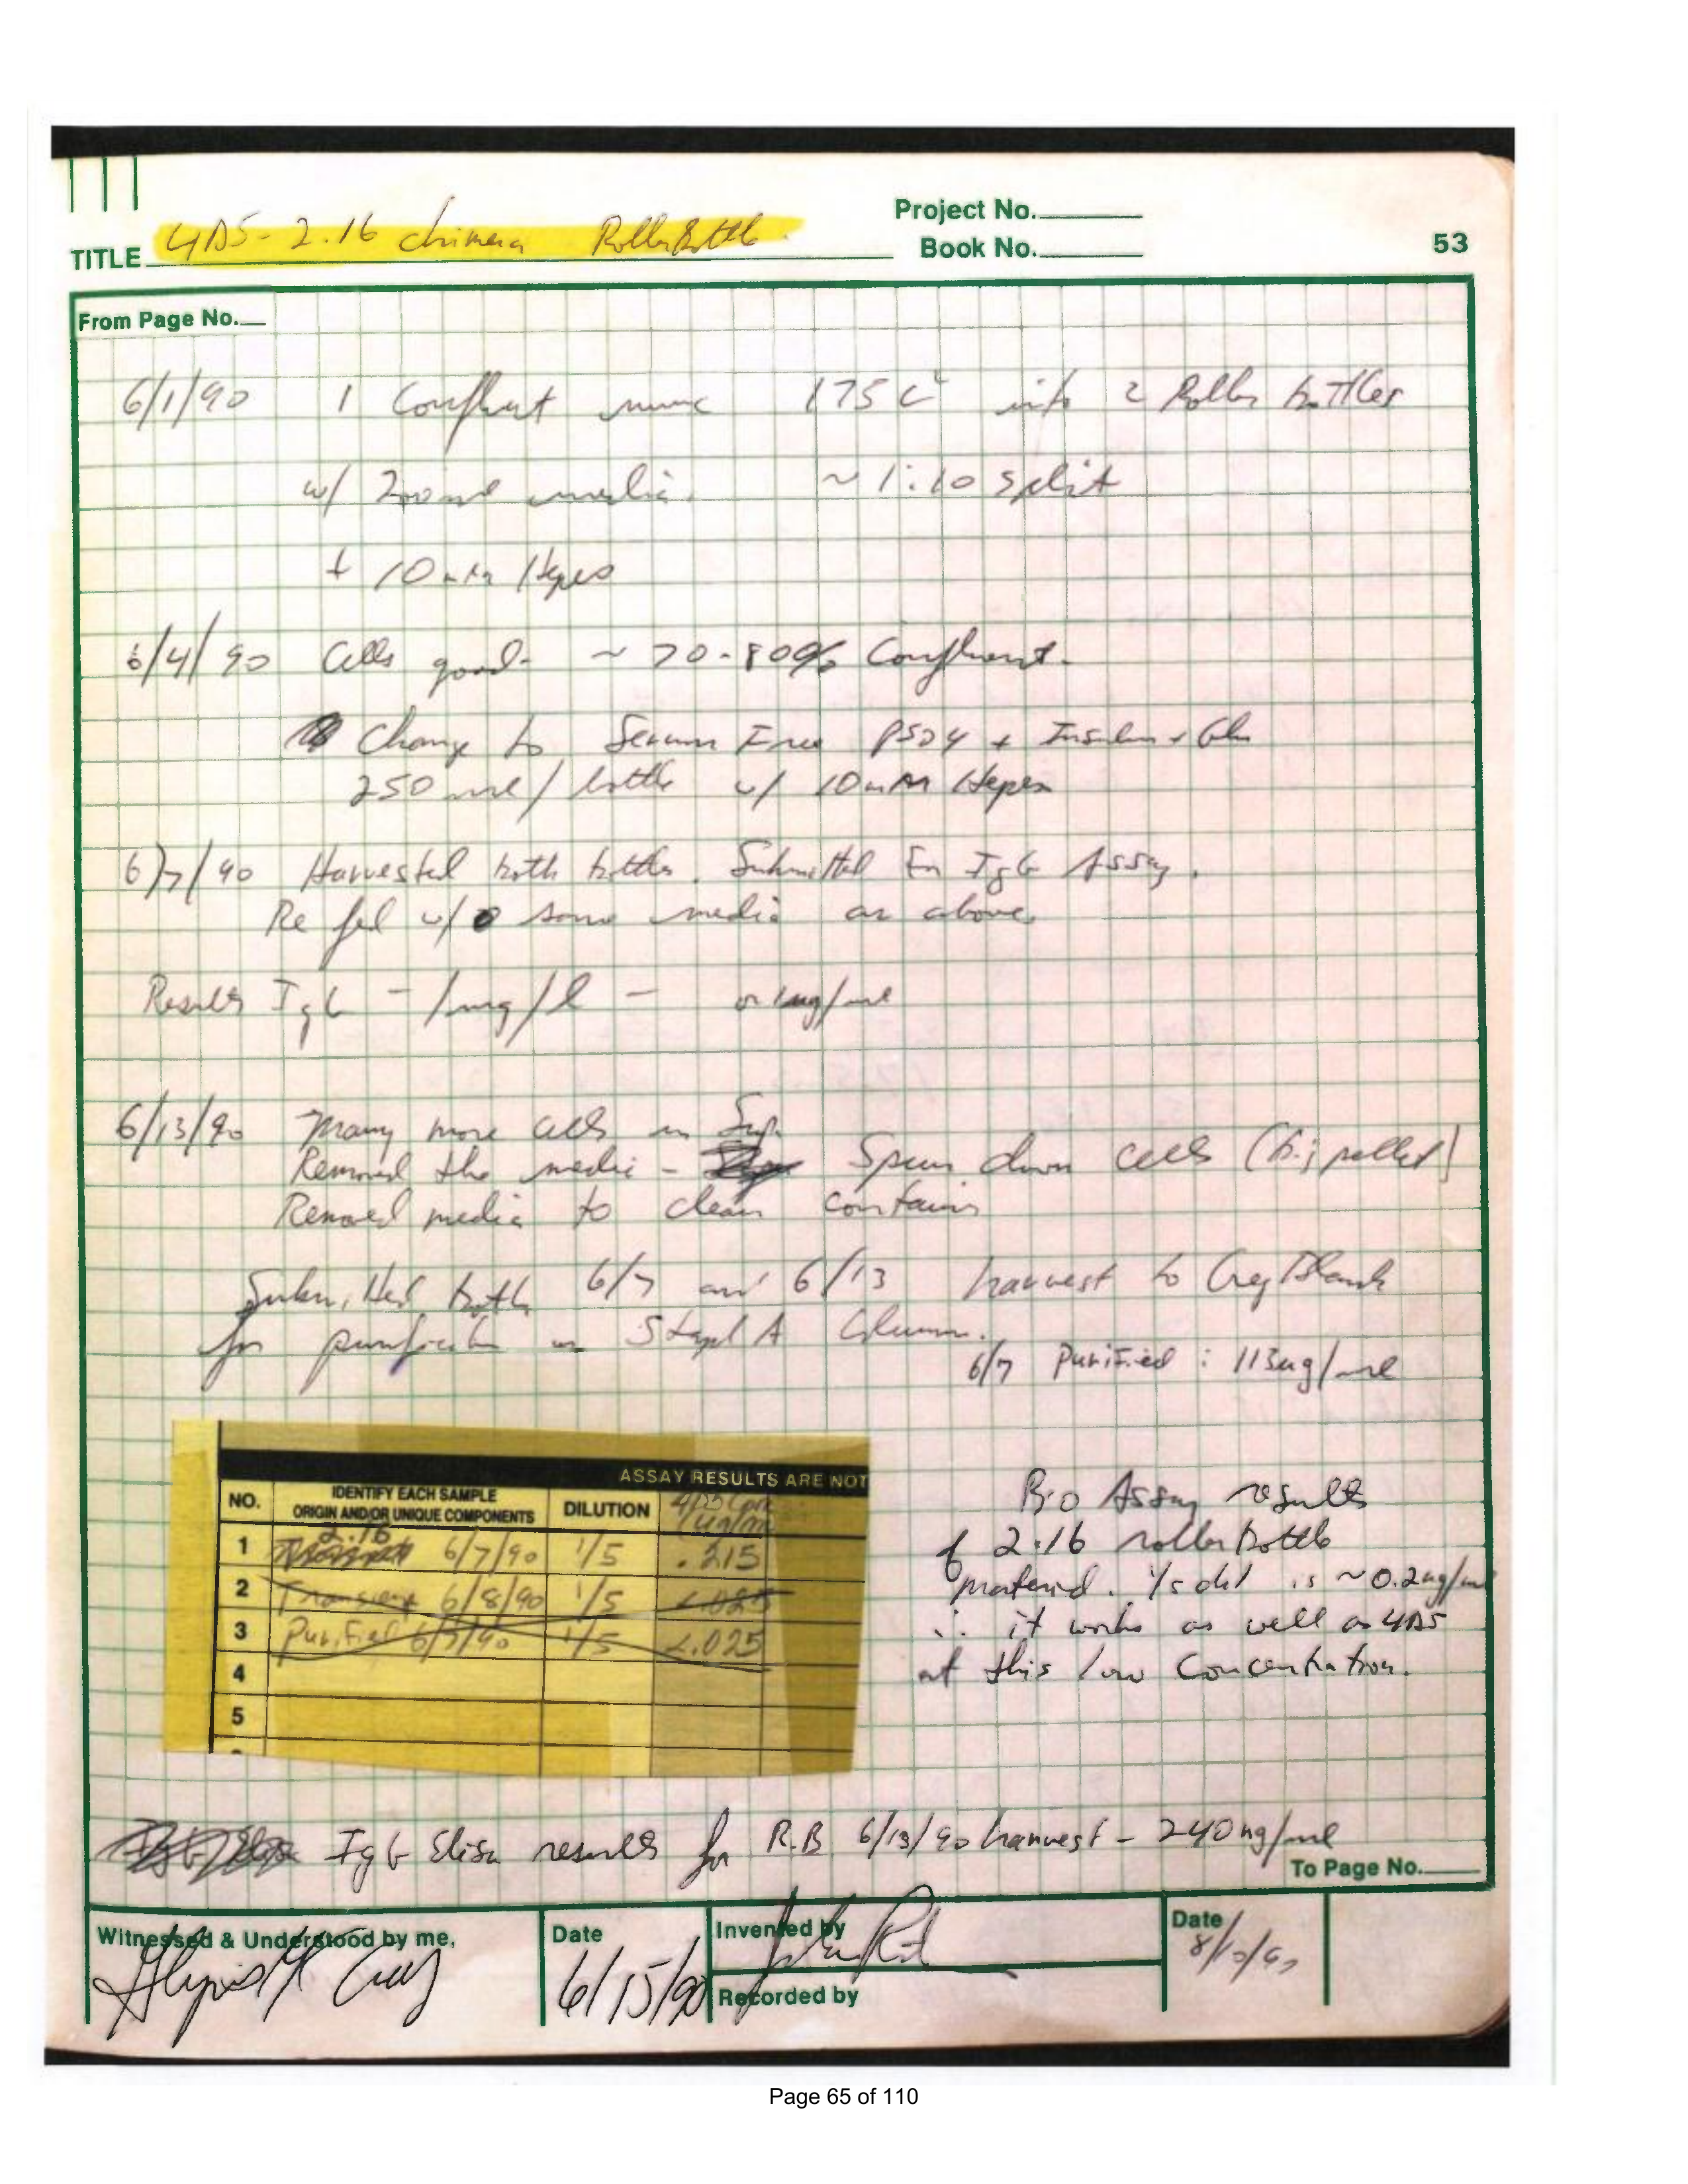 Project No.
TITLE 4D5-2.16 chimera Roller Bottle
Book No.
53
From Page No.
6/1/90 1 Confluent nunc 175 c² into 2 Roller bottles
w/ 200ml media. ~1:10 split
+ 10mM Hepes
6/4/90 Cells good- ~70-80% Confluent-
Change to Serum Free PS04 + Insulin + Gln
250 ml/bottle w/ 10mM Hepes
6/7/90 Harvested both bottles. Submitted for IgG Assay.
Re fed w/ same media as above.
Results IgG - 1mg/l - or 1ug/ml
6/13/90 Many more cells in Sup.
Removed the media - Spun down cells (big pellet)
Removed media to clean contain
Submitted both 6/7 and 6/13 harvest to Greg Blank
for purification on Staph A Column.
6/7 Purified : 113ug/ml
ASSAY RESULTS ARE NOT
NO. IDENTIFY EACH SAMPLE ORIGIN AND/OR UNIQUE COMPONENTS DILUTION 4D5 Con ug/m
1 2.16 6/7/90 1/5 .215
2 Transient 6/8/90 1/5 <.025
3 Purified 6/7/90 1/5 <.025
4
5
Bio Assay results
of 2.16 roller bottle
material. 1/5 dil is ~0.2ug/ml
∴ it works as well as 4D5
at this low Concentration.
IgG Elisa results for R.B 6/13/90 harvest - 240ng/ml
To Page No.
Witnessed & Understood by me,
Date
6/15/90
Invented by
Recorded by
Date
Page 65 of 110